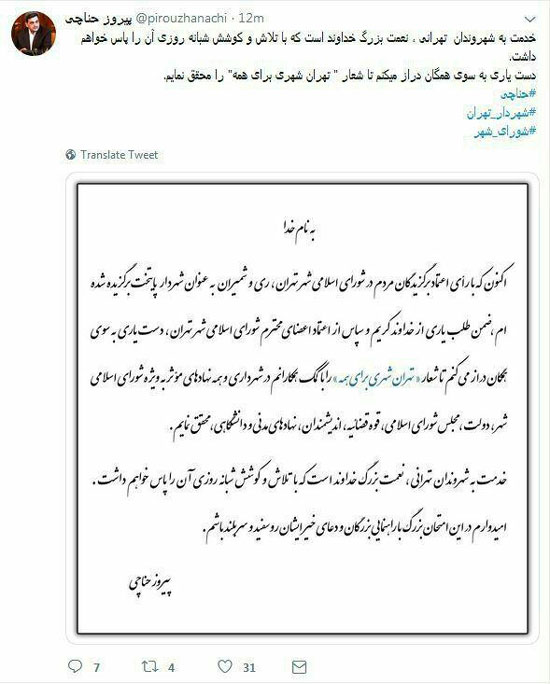 پیروز حناچی @pirouzhanachi · 12m
خدمت به شهروندان تهرانی ، نعمت بزرگ خداوند است که با تلاش و کوشش شبانه روزی آن را پاس خواهم
داشت.
دست یاری به سوی همگان دراز میکنم تا شعار " تهران شهری برای همه" را محقق نمایم.
#حناچی
#شهردار_تهران
#شورای_شهر
Translate Tweet
به نام خدا
اکنون که با رأی اعتماد برگزیدگان مردم در شورای اسلامی شهر تهران، ری و شمیران به عنوان شهردار پایتخت برگزیده شده
ام ، ضمن طلب یاری از خداوند کریم و سپاس از اعتماد اعضای محترم شورای اسلامی شهر تهران ، دست یاری به سوی
همگان دراز می کنم تا شعار «تهران شهری برای همه» را با کمک همکارانم در شهرداری و همه نهادهای مؤثر به ویژه شورای اسلامی
شهر، دولت، مجلس شورای اسلامی، قوه قضائیه، اندیشمندان، نهادهای مدنی و دانشگاهی، محقق نمایم.
خدمت به شهروندان تهرانی ، نعمت بزرگ خداوند است که با تلاش و کوشش شبانه روزی آن را پاس خواهم داشت .
امیدوارم در این امتحان بزرگ با راهنمایی بزرگان و دعای خیر ایشان رو سفید و سربلند باشم.
پیروز حناچی
7 4 31